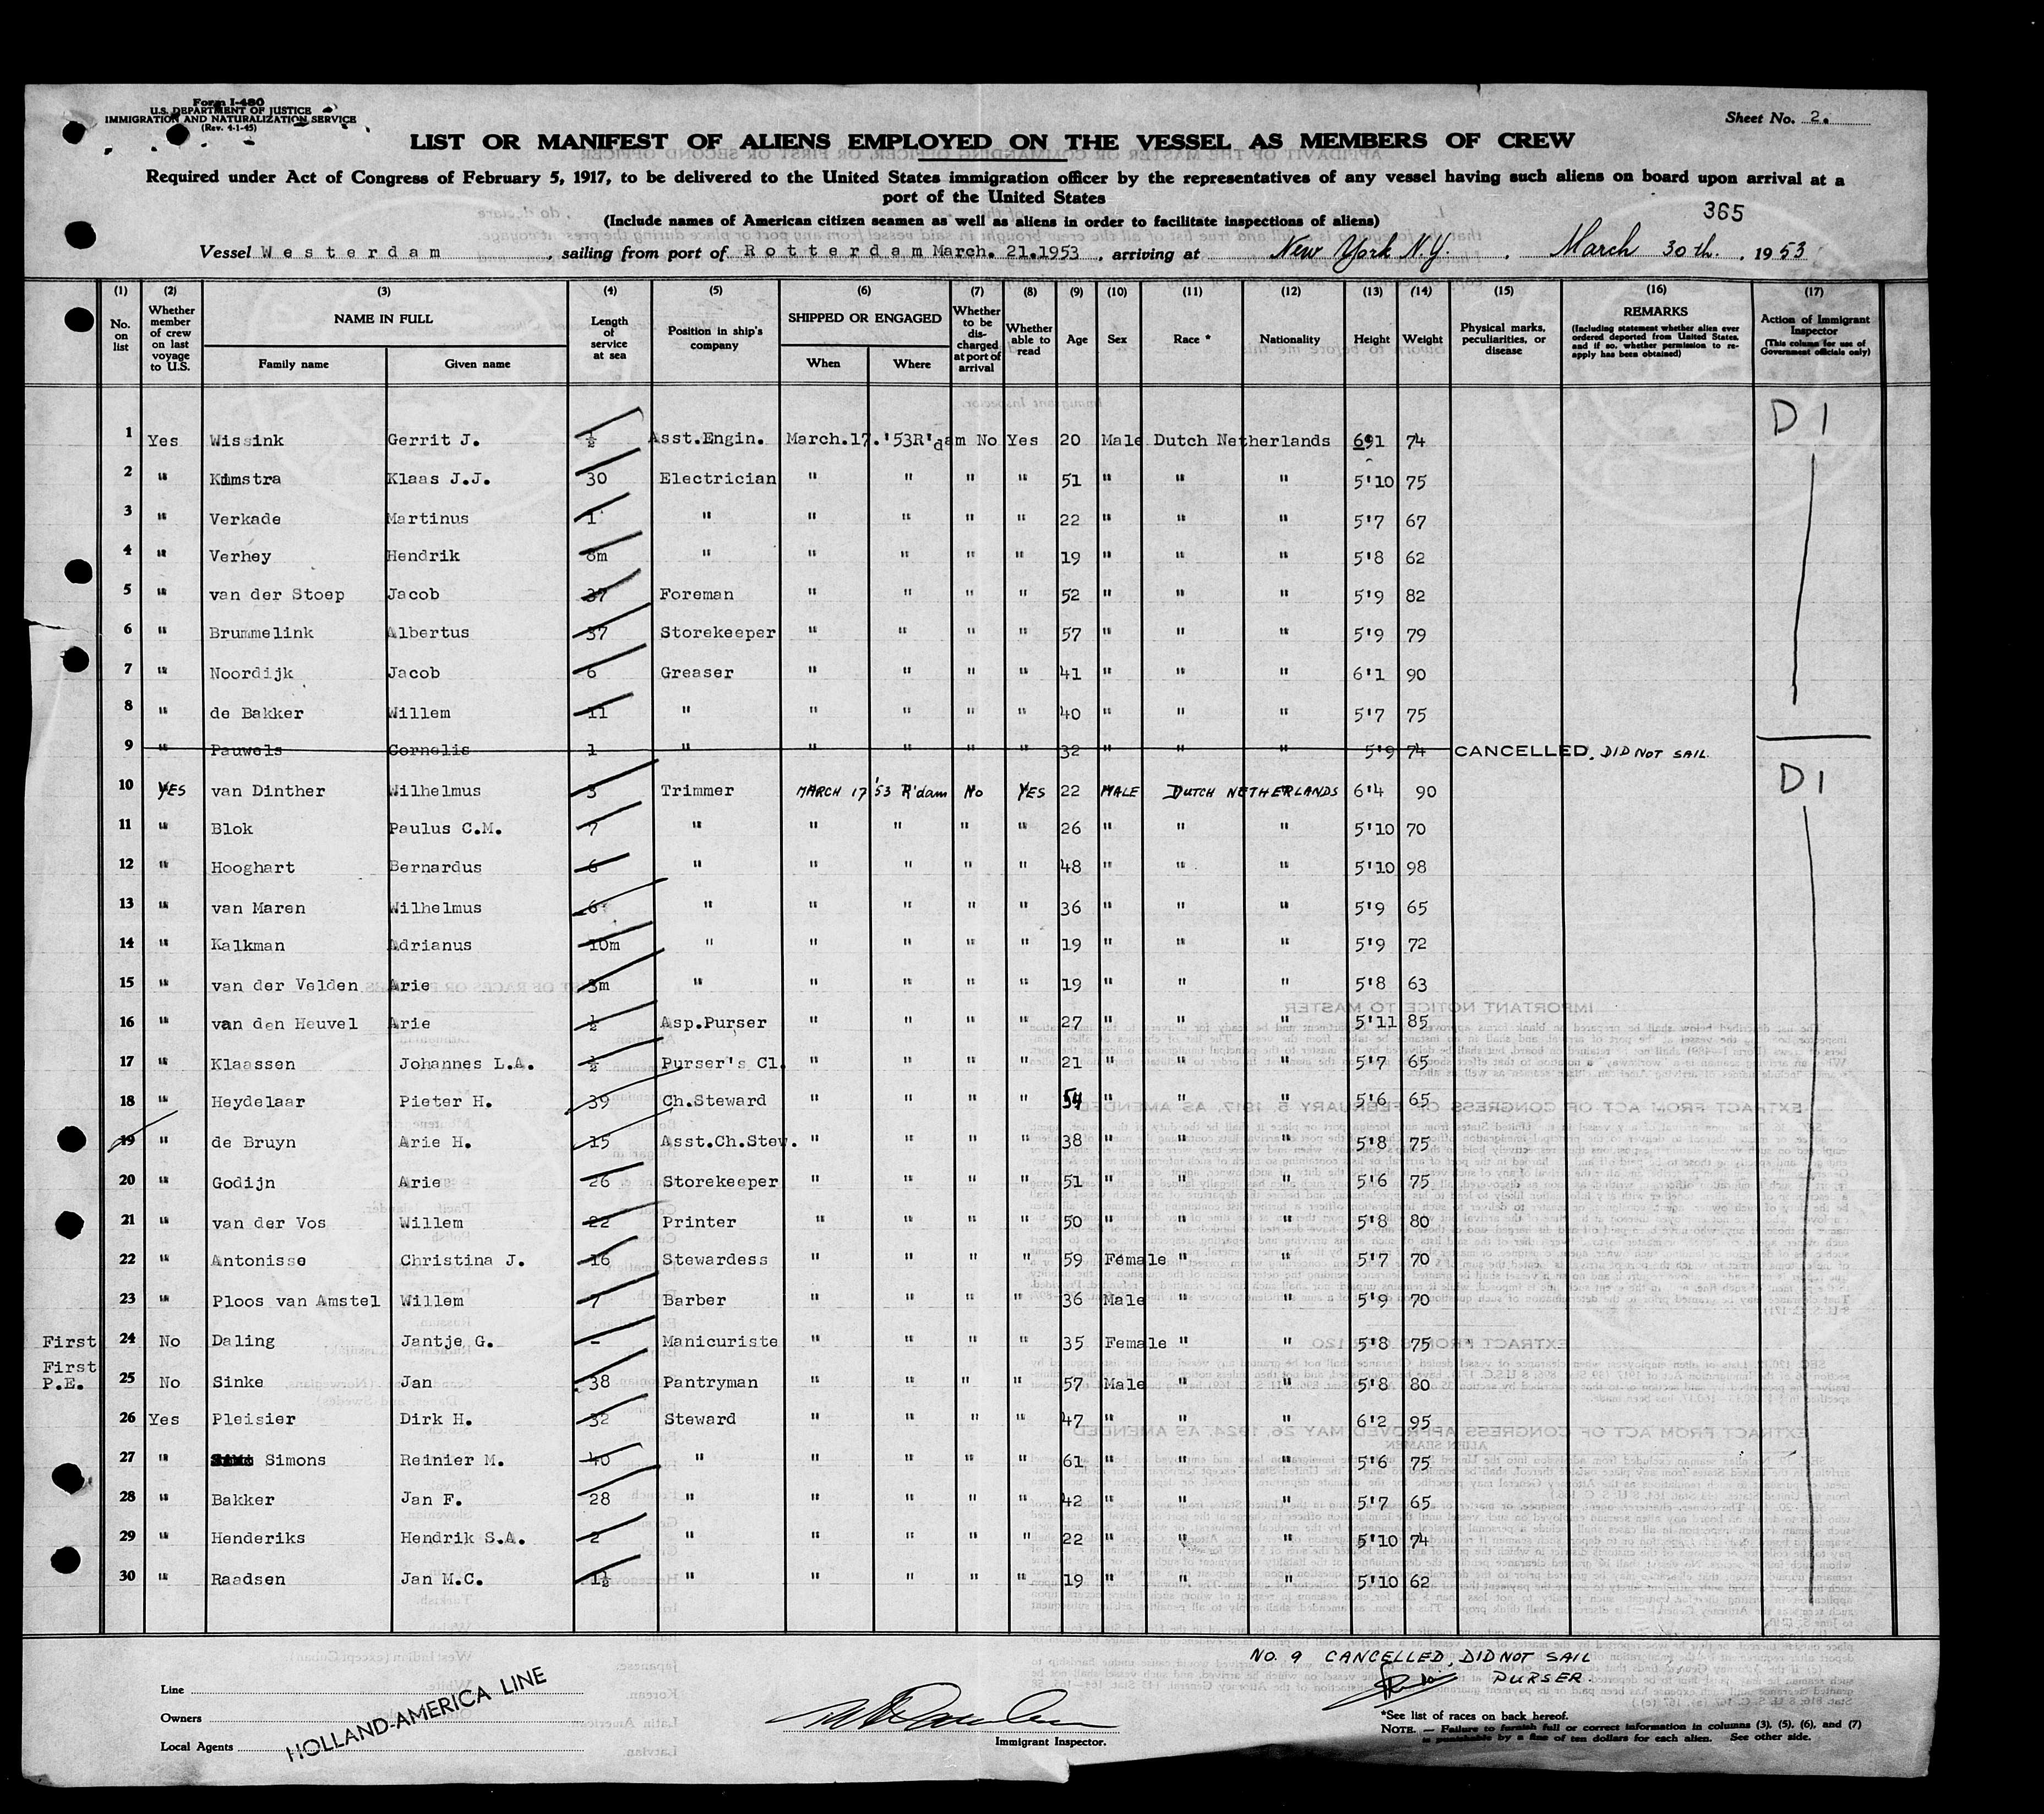 Form I-480
U.S. DEPARTMENT OF JUSTICE
IMMIGRATION AND NATURALIZATION SERVICE
(Rev. 4-1-45)
Sheet No. 2.
LIST OR MANIFEST OF ALIENS EMPLOYED ON THE VESSEL AS MEMBERS OF CREW
Required under Act of Congress of February 5, 1917, to be delivered to the United States immigration officer by the representatives of any vessel having such aliens on board upon arrival at a
port of the United States
(Include names of American citizen seamen as well as aliens in order to facilitate inspections of aliens)
365
Vessel Westerdam, sailing from port of Rotterdam March. 21.1953, arriving at New York N.Y. , March 30th. , 1953
(1) (2) (3) (4) (5) (6) (7) (8) (9) (10) (11) (12) (13) (14) (15) (16) (17)
No. on list
Whether member of crew on last voyage to U.S.
NAME IN FULL
Family name Given name
Length of service at sea
Position in ship's company
SHIPPED OR ENGAGED
When Where
Whether to be discharged at port of arrival
Whether able to read
Age
Sex
Race *
Nationality
Height
Weight
Physical marks, peculiarities, or disease
REMARKS
(Including statement whether alien ever ordered deported from United States, and if so, whether permission to reapply has been obtained)
Action of Immigrant Inspector
(This column for use of Government officials only)
D1
1 Yes Wissink Gerrit J. ½ Asst.Engin. March.17.'53 R'dam No Yes 20 Male Dutch Netherlands 6'1 74
2 " Kimstra Klaas J.J. 30 Electrician " " " " 51 " " " 5'10 75
3 " Verkade Martinus 1 " " " " " 22 " " " 5'7 67
4 " Verhey Hendrik 8m " " " " " 19 " " " 5'8 62
5 " van der Stoep Jacob 37 Foreman " " " " 52 " " " 5'9 82
6 " Brummelink Albertus 37 Storekeeper " " " " 57 " " " 5'9 79
7 " Noordijk Jacob 6 Greaser " " " " 41 " " " 6'1 90
8 " de Bakker Willem 11 " " " " " 40 " " " 5'7 75
9 " Pauwels Cornelis 1 " " " " " 32 " " " 5'9 74 CANCELLED, DID NOT SAIL.
D1
10 YES van Dinther Wilhelmus 3 Trimmer MARCH 17 '53 R'dam No YES 22 MALE DUTCH NETHERLANDS 6'4 90
11 " Blok Paulus C.M. 7 " " " " " 26 " " " 5'10 70
12 " Hooghart Bernardus 6 " " " " " 48 " " " 5'10 98
13 " van Maren Wilhelmus 6 " " " " " 36 " " " 5'9 65
14 " Kalkman Adrianus 10m " " " " " 19 " " " 5'9 72
15 " van der Velden Arie 3m " " " " " 19 " " " 5'8 63
16 " van den Heuvel Arie ½ Asp.Purser " " " " 27 " " " 5'11 85
17 " Klaassen Johannes L.A. ½ Purser's Cl. " " " " 21 " " " 5'7 65
18 " Heydelaar Pieter H. 39 Ch.Steward " " " " 54 " " " 5'6 65
19 " de Bruyn Arie H. 15 Asst.Ch.Stew. " " " " 38 " " " 5'8 75
20 " Godijn Arie 26 Storekeeper " " " " 51 " " " 5'6 75
21 " van der Vos Willem 22 Printer " " " " 50 " " " 5'8 80
22 " Antonisse Christina J. 16 Stewardess " " " " 59 Female " " 5'7 70
23 " Ploos van Amstel Willem 7 Barber " " " " 36 Male " " 5'9 70
First 24 No Daling Jantje G. - Manicuriste " " " " 35 Female " " 5'8 75
First P.E. 25 No Sinke Jan 38 Pantryman " " " " 57 Male " " 5'8 80
26 Yes Pleisier Dirk H. 32 Steward " " " " 47 " " " 6'2 95
27 " Simons Reinier M. 40 " " " " " 61 " " " 5'6 75
28 " Bakker Jan F. 28 " " " " " 42 " " " 5'7 65
29 " Henderiks Hendrik S.A. 2 " " " " " 22 " " " 5'10 74
30 " Raadsen Jan M.C. 1½ " " " " " 19 " " " 5'10 62
NO. 9 CANCELLED, DID NOT SAIL
PURSER.
Line
Owners
Local Agents
HOLLAND-AMERICA LINE
Immigrant Inspector.
*See list of races on back hereof.
NOTE. — Failure to furnish full or correct information in columns (3), (5), (6), and (7)
is punishable by a fine of ten dollars for each alien. See other side.